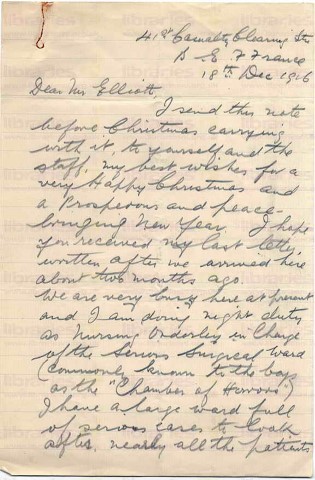 41st Casualty Clearing Stn
B E F France
18th Dec 1916
Dear Mr Elliott.
I send this note
before Christmas carrying
with it, to yourself and the
staff, my best wishes for a
very Happy Christmas and
a Prosperous and peace-
bringing New Year. I hope
you received my last letter,
written after we arrived here
about two months ago.
We are very busy here at present
and I am doing night duty
as Nursing Orderly in Charge
of the Serious Surgical Ward
(commonly known to the boys
as the "Chamber of Horrors")
I have a large ward full
of serious cases to look
after, nearly all the patients